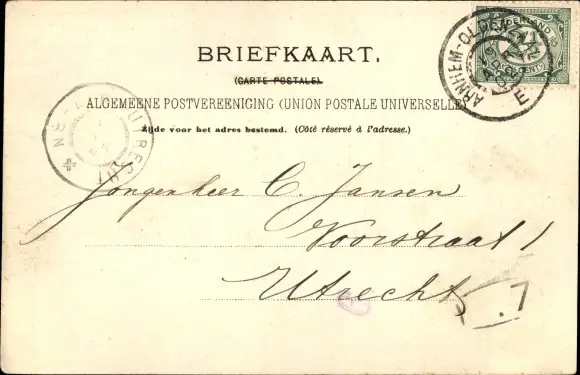 BRIEFKAART.
(CARTE POSTALE).
ALGEMEENE POSTVEREENIGING (UNION POSTALE UNIVERSELLE)
Zijde voor het adres bestemd. (Côté réservé à l'adresse.)
ARNHEM-OLDENZAAL
E
NEDERLAND
UTRECHT
Jongenheer C. Jansen
Voorstraat 1
Utrecht
7